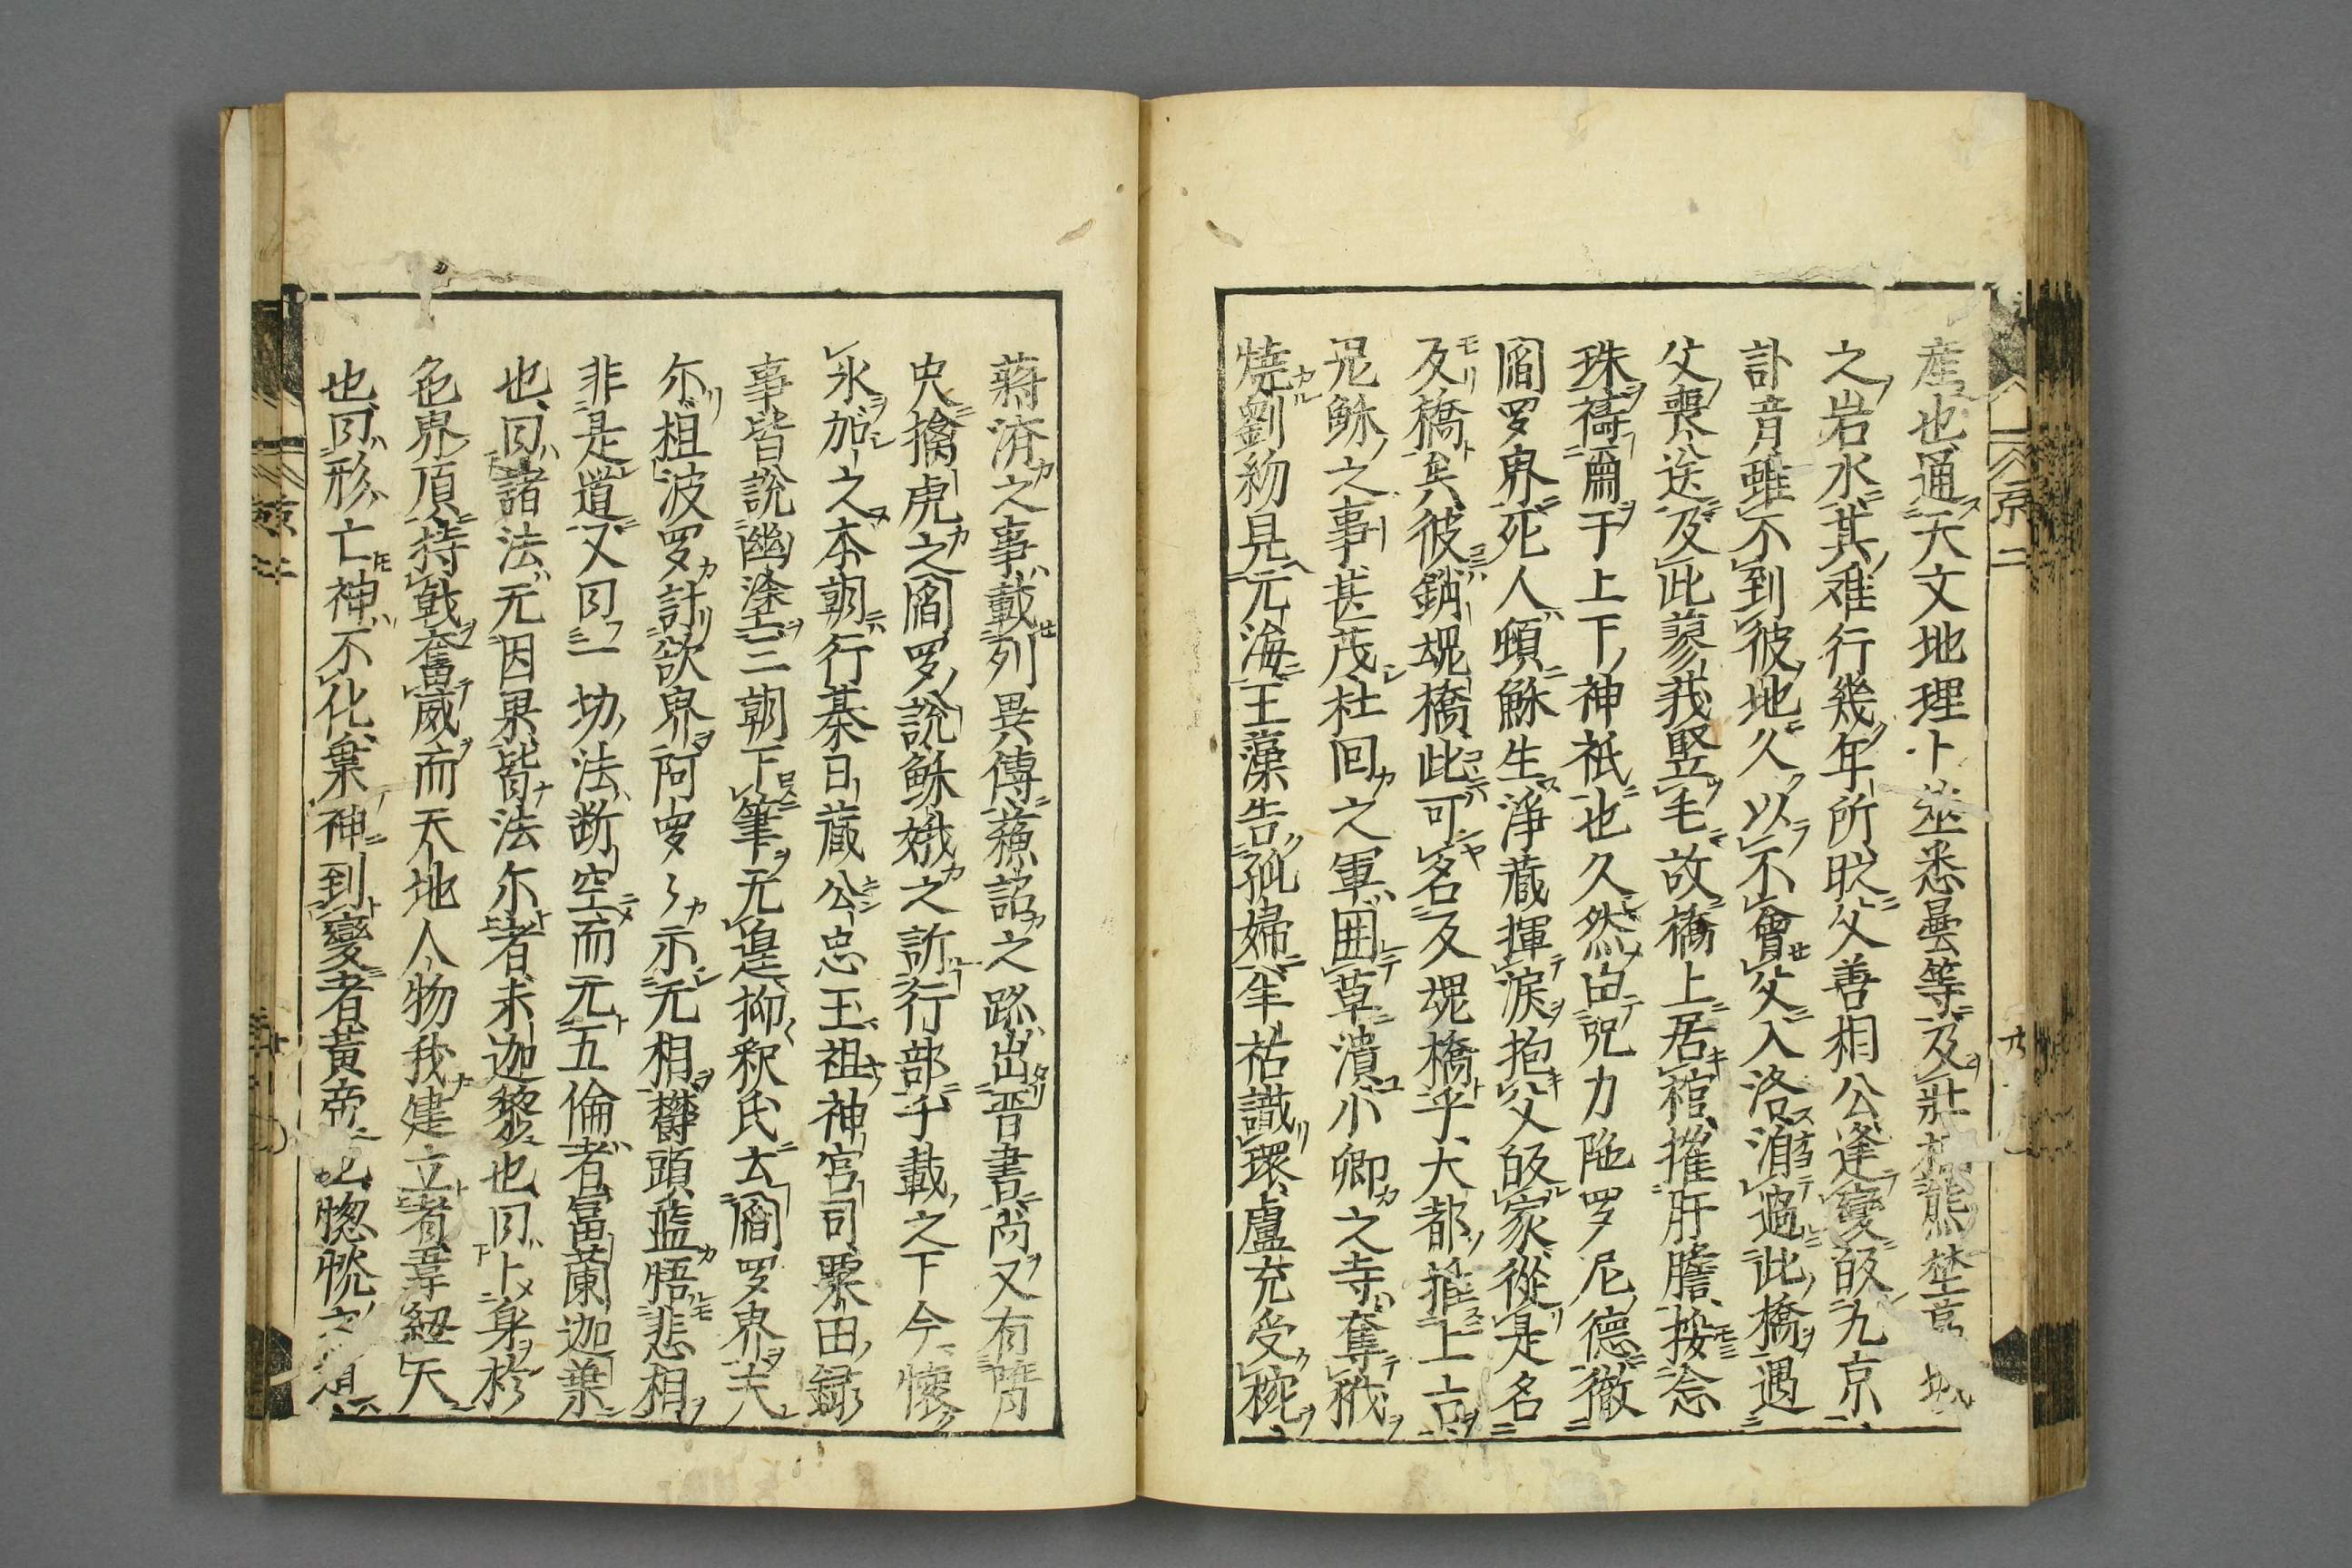 産也通天文地理卜筮悉曇等及壯熊埜
之岩水其难行幾年所时父善相公逢變皈九京
訃音雖不到彼地久以不會父入洛泝過此橋遇
父喪送及此蓼我竪毛故橋上居棺摧肝膽按念
珠禱爾于上下神祇也久然由咒力陁罗尼德徹
閻罗界死人頓穌生淨藏揮淚抱父皈家從是名
及橋矣彼銷魂橋此可名又魂橋乎大都推上古
凡穌之事甚茂杜回之軍囲草潰小卿之寺奪戕
燒劉紉見元海王藻告孤婦牟祐識環盧充受椀
蒋済之事載列異傳蘓詔之跡出晋書尚又有膺
史擒虎之閻罗説穌娥之訴行部千載之下今懷
氷加之本朝行綦日藏公忠玉祖神宮司粟田録
事皆說幽塗三朝下筆无遑抑釈氏云閻罗界夫
尓柤波罗計欲界阿罗〻示元相欝頭藍悟悲相
非是道又曰一切法断空而元五倫者富蘭迦葉
也曰諸法元因果皆法尓者末迦黎也曰卜身於
色界頂持戟奮威而天地人物我建立者韋紐天
也曰形亡神不化棄神到變者黃帝也惚恍之
京二
京二